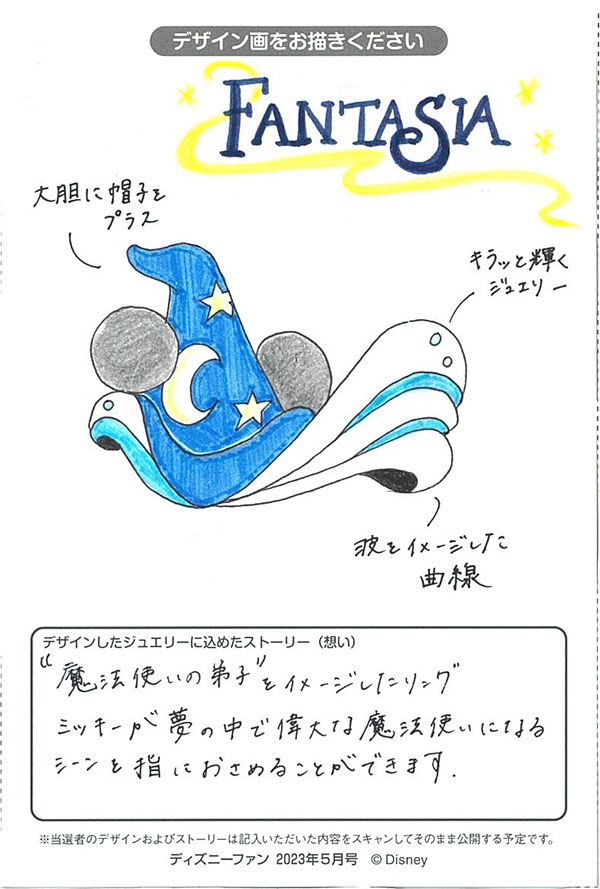 デザイン画をお描きください
FANTASIA
大胆に帽子を
プラス
キラッと輝く
ジュエリー
波をイメージした
曲線
デザインしたジュエリーに込めたストーリー（想い）
“魔法使いの弟子”をイメージしたリング
ミッキーが夢の中で偉大な魔法使いになる
シーンを指におさめることができます.
※当選者のデザインおよびストーリーは記入いただいた内容をスキャンしてそのまま公開する予定です。
ディズニーファン 2023年5月号 ©Disney